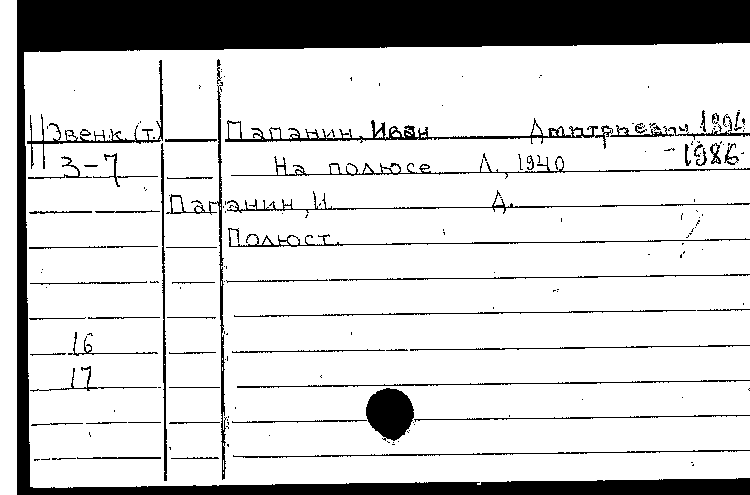 Эвенк. (т.) Папанин, Иван Дмитриевич, 1894
3-7 На полюсе Л., 1940 -1986
Папанин, И. Д.
Полюст.
16
17